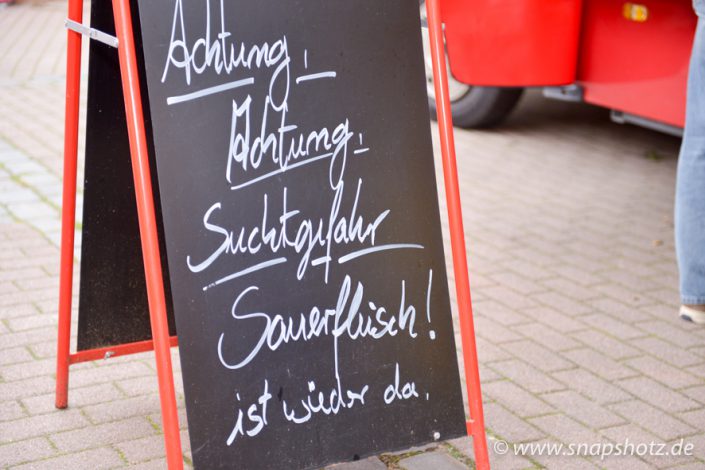 Achtung,
Achtung,
Suchtgefahr
Sauerflisch!
ist wieder da.
© www.snapshotz.de